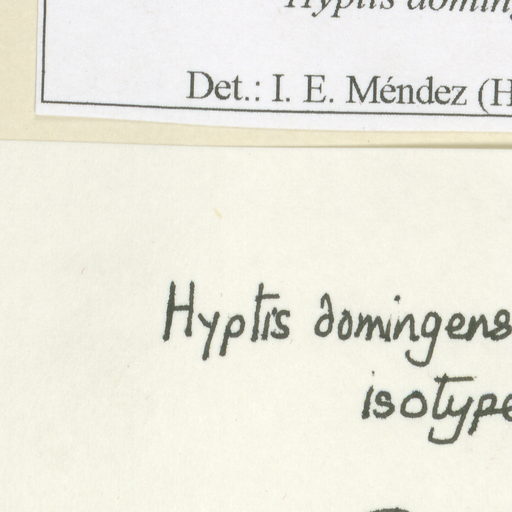 Hyptis doming
Det.: I. E. Méndez (H
Hyptis domingens
isotype